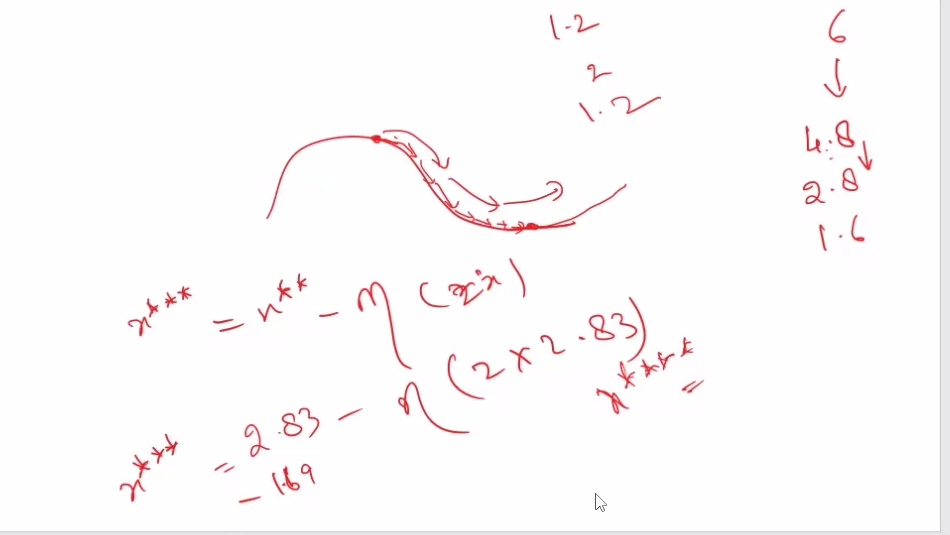 1.2
2
1.2
6
↓
4.8
2.8
1.6
x*** = x** - η (2x)
x*** = 2.83 - η (2 × 2.83)
x**** =
= 1.69